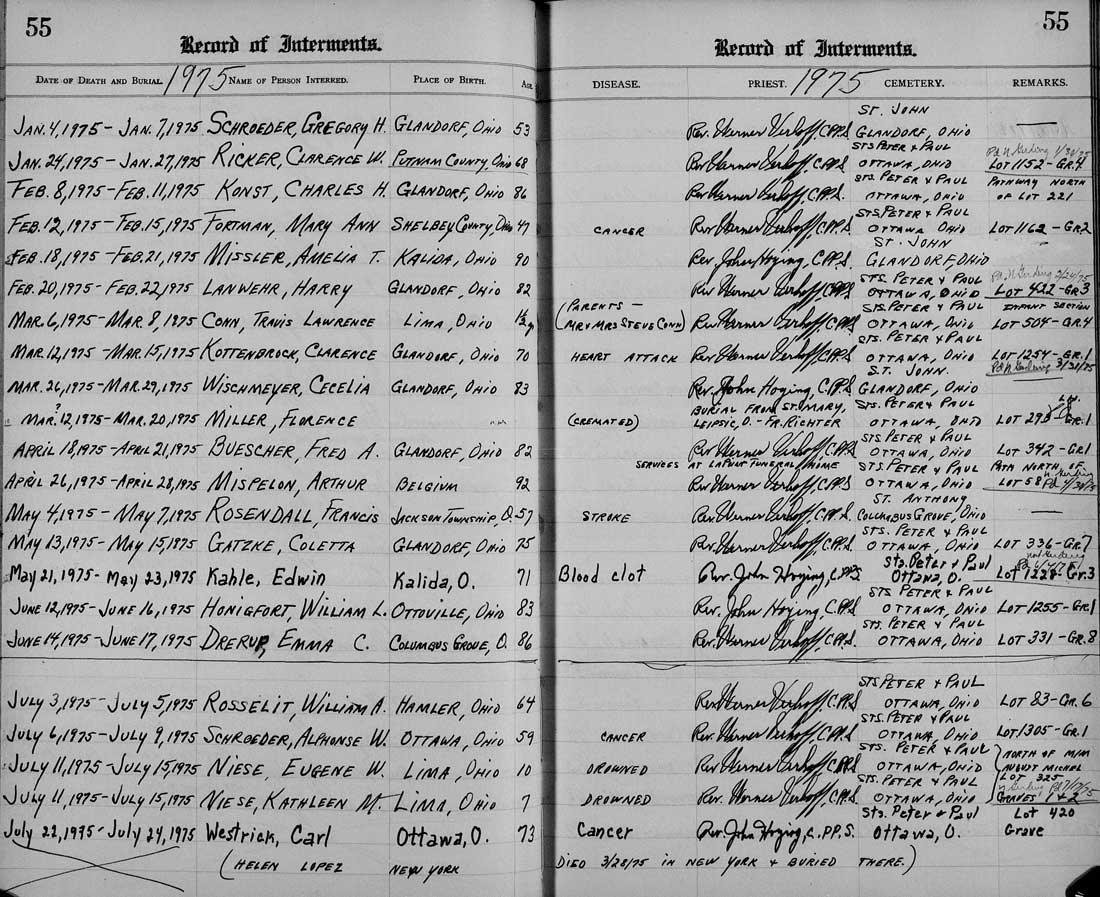 55
Record of Interments.
DATE OF DEATH AND BURIAL. 1975 NAME OF PERSON INTERRED. PLACE OF BIRTH. AGE
JAN. 4, 1975 - JAN. 7, 1975 SCHROEDER, GREGORY H. GLANDORF, OHIO 53
JAN. 24, 1975 - JAN. 27, 1975 RICKER, CLARENCE W. PUTNAM COUNTY, OHIO 68
FEB. 8, 1975 - FEB. 11, 1975 KONST, CHARLES H. GLANDORF, OHIO 86
FEB. 12, 1975 - FEB. 15, 1975 FORTMAN, MARY ANN SHELBEY COUNTY, OHIO 47
FEB. 18, 1975 - FEB. 21, 1975 MISSLER, AMELIA T. KALIDA, OHIO 90
FEB. 20, 1975 - FEB. 22, 1975 LANWEHR, HARRY GLANDORF, OHIO 82
MAR. 6, 1975 - MAR 8, 1975 CONN, TRAVIS LAWRENCE LIMA, OHIO 1½
MAR. 12, 1975 - MAR. 15, 1975 KOTTENBROCK, CLARENCE GLANDORF, OHIO 70
MAR. 26, 1975 - MAR. 29, 1975 WISCHMEYER, CECELIA GLANDORF, OHIO 83
?
MAR. 12, 1975 - MAR. 20, 1975 MILLER, FLORENCE
APRIL 18, 1975 - APRIL 21, 1975 BUESCHER, FRED A. GLANDORF, OHIO 82
APRIL 26, 1975 - APRIL 28, 1975 MISPELON, ARTHUR BELGIUM 92
MAY 4, 1975 - MAY 7, 1975 ROSENDALL, FRANCIS JACKSON TOWNSHIP, O. 57
MAY 13, 1975 - MAY 15, 1975 GATZKE, COLETTA GLANDORF, OHIO 75
May 21, 1975 - May 23, 1975 Kahle, Edwin Kalida, O. 71
JUNE 12, 1975 - JUNE 16, 1975 HONIGFORT, WILLIAM L. OTTOVILLE, OHIO 83
JUNE 14, 1975 - JUNE 17, 1975 DRERUP, EMMA C. COLUMBUS GROVE, O. 86
JULY 3, 1975 - JULY 5, 1975 ROSSELIT, WILLIAM A. HAMLER, OHIO 64
JULY 6, 1975 - JULY 9, 1975 SCHROEDER, ALPHONSE W. OTTAWA, OHIO 59
JULY 11, 1975 - JULY 15, 1975 NIESE, EUGENE W. LIMA, OHIO 10
JULY 11, 1975 - JULY 15, 1975 NIESE, KATHLEEN M. LIMA, OHIO 7
July 22, 1975 - July 24, 1975 Westrick, Carl Ottawa, O. 73
(HELEN LOPEZ NEW YORK
55
Record of Interments.
DISEASE. PRIEST. 1975 CEMETERY. REMARKS.
ST. JOHN
Rev. Werner Verhoff, C.PP.S. GLANDORF, OHIO
STS PETER & PAUL
Rev. Werner Verhoff, C.PP.S. OTTAWA, OHIO LOT 1152 - GR. 4
STS. PETER & PAUL PATHWAY NORTH
Rev. Werner Verhoff, C.PP.S. OTTAWA, OHIO OF LOT 221
STS. PETER & PAUL
CANCER Rev. Werner Verhoff, C.PP.S. OTTAWA OHIO LOT 1162 - GR. 2
ST. JOHN
Rev. John Hoying, C.PP.S. GLANDORF, OHIO
STS. PETER & PAUL
Rev. Werner Verhoff, C.PP.S. OTTAWA, OHIO LOT 422 - GR 3
(PARENTS - STS. PETER & PAUL INFANT SECTION
MR & MRS STEVE CONN) Rev. Werner Verhoff, C.PP.S. OTTAWA, OHIO LOT 504 - GR. 4
STS. PETER & PAUL
HEART ATTACK Rev. Werner Verhoff, C.PP.S. OTTAWA, OHIO LOT 1254 - GR. 1
ST. JOHN. 3/31/75
Rev. John Hoying, C.PP.S. GLANDORF, OHIO
BURIAL FROM ST. MARY, STS. PETER & PAUL
(CREMATED) LEIPSIC, O. - FR. RICHTER OTTAWA, OHIO LOT 290 GR. 1
STS. PETER & PAUL
Rev. Werner Verhoff, C.PP.S OTTAWA, OHIO LOT 342 - GR. 1
SERVICES AT LAPOINT FUNERAL HOME STS. PETER & PAUL PATH NORTH OF
Rev. Werner Verhoff, C.PP.S OTTAWA, OHIO LOT 58
ST. ANTHONY
STROKE Rev. Werner Verhoff, C.PP.S. COLUMBUS GROVE, OHIO
STS. PETER & PAUL
Rev. Werner Verhoff, C.PP.S. OTTAWA, OHIO LOT 336 - GR. 7
Sts. Peter & Paul
Blood clot Rev. John Hoying, C.PP.S Ottawa, O. Lot 1228 - Gr. 3
STS PETER & PAUL
Rev. John Hoying C.PP.S. OTTAWA, OHIO LOT 1255 - GR. 1
STS. PETER & PAUL
Rev. Werner Verhoff, C.PP.S. OTTAWA, OHIO LOT 331 - GR. 8
STS. PETER & PAUL
Rev. Werner Verhoff, C.PP.S OTTAWA, OHIO LOT 83 - GR. 6
STS. PETER & PAUL
CANCER Rev. Werner Verhoff, C.PP.S OTTAWA, OHIO LOT 1305 - GR. 1
STS. PETER & PAUL NORTH OF M/M
DROWNED Rev. Werner Verhoff, C.PP.S OTTAWA, OHIO AUGUST MICHEL
STS. PETER & PAUL LOT 325
DROWNED Rev. Werner Verhoff, C.PP.S OTTAWA, OHIO GRAVES 1 & 2
Sts. Peter & Paul Lot 420
Cancer Rev. John Hoying, C.PP.S. Ottawa, O. Grave
DIED 3/28/75 IN NEW YORK & BURIED THERE.)